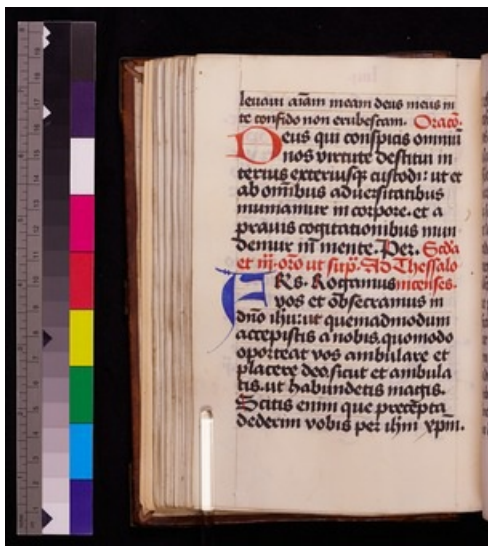 leuaui aīam meam deus meus in
te confido non erubescam. Oracō.
Deus qui conspicis omniū
nos virtute destitui in
terius exteriusq̄ custodi: ut et
ab omībus aduersitatibus
muniamur in corpore. et a
prauis cogitationibus mun
demur in mente. Per. Scd̄a
et iij. orō ut sup̄. Ad Thessalo
Frēs. Rogamus nicenses.
vos et obsecramus in
dnō ihū: ut quemadmodum
accepistis a nobis. quomodo
oporteat vos ambulare et
placere deo. sicut et ambula
tis. ut habundetis magis.
Scitis enim que precepta
dederim vobis per ihm̄ xpm̄.